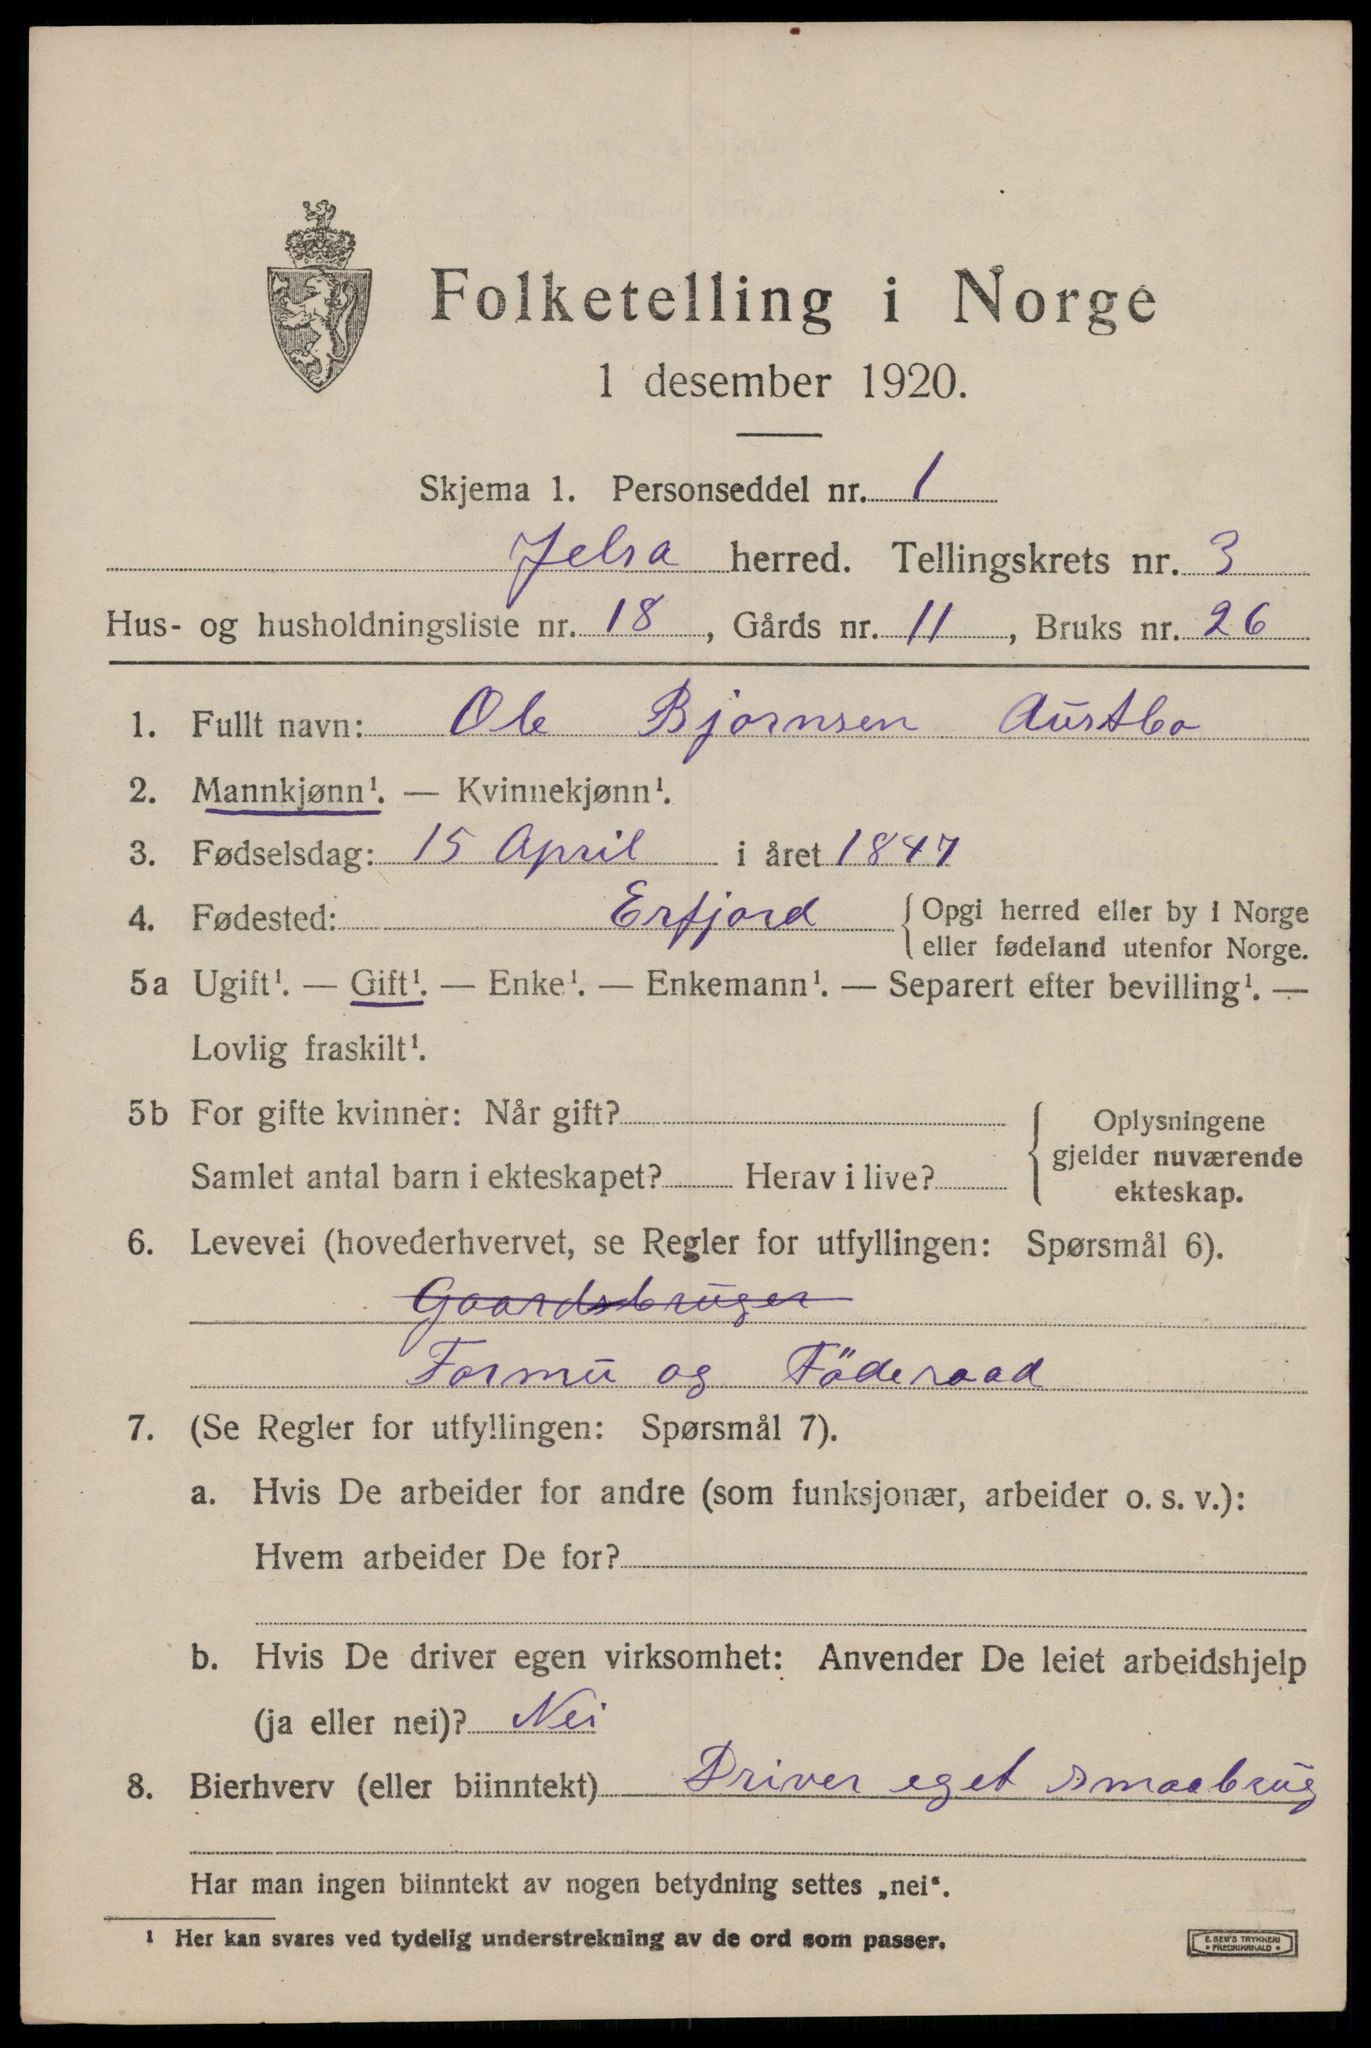 Folketelling i Norge
1 desember 1920.
Skjema 1. Personseddel nr. 1
Jelsa herred. Tellingskrets nr. 3
Hus- og husholdningsliste nr. 18, Gårds nr. 11, Bruks nr. 26
1. Fullt navn: Ole Bjornsen Austbo
2. Mannkjønn¹. — Kvinnekjønn¹.
3. Fødselsdag: 15 April i året 1847
4. Fødested: Erfjord { Opgi herred eller by i Norge
eller fødeland utenfor Norge.
5a Ugift¹. — Gift¹. — Enke¹. — Enkemann¹. — Separert efter bevilling¹. —
Lovlig fraskilt¹.
5b For gifte kvinner: Når gift?
Samlet antal barn i ekteskapet? Herav i live?
Oplysningene
gjelder nuværende
ekteskap.
6. Levevei (hovederhvervet, se Regler for utfyllingen: Spørsmål 6).
Gaardsbruger
Formu og Föderaad
7. (Se Regler for utfyllingen: Spørsmål 7).
a. Hvis De arbeider for andre (som funksjonær, arbeider o. s. v.):
Hvem arbeider De for?
b. Hvis De driver egen virksomhet: Anvender De leiet arbeidshjelp
(ja eller nei)? Nei
8. Bierhverv (eller biinntekt) Driver eget smaabrug
Har man ingen biinntekt av nogen betydning settes „nei“.
¹ Her kan svares ved tydelig understrekning av de ord som passer.
E. SEM'S TRYKKERI
• FREDRIKSHALD •